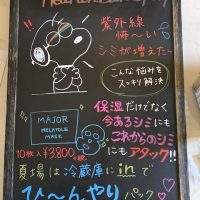 紫外線
怖〜い
シミが増えた〜
こんな悩みを
スッキリ解決
保湿だけでなく
今あるシミにも
これからのシミ
にもアタック!!
MAJOR
MELATOLE
MASK
10枚入¥3,800
+税
夏場は冷蔵庫にinで
ひ〜んやり
パック